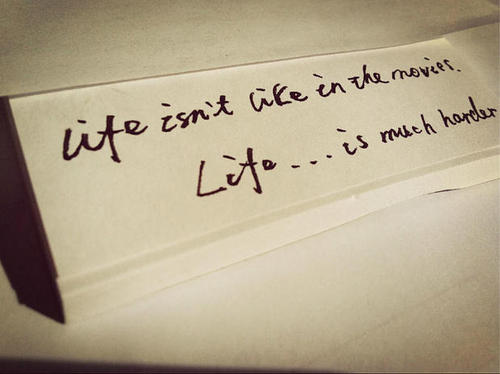 Life isn't like in the movies.
Life... is much harder